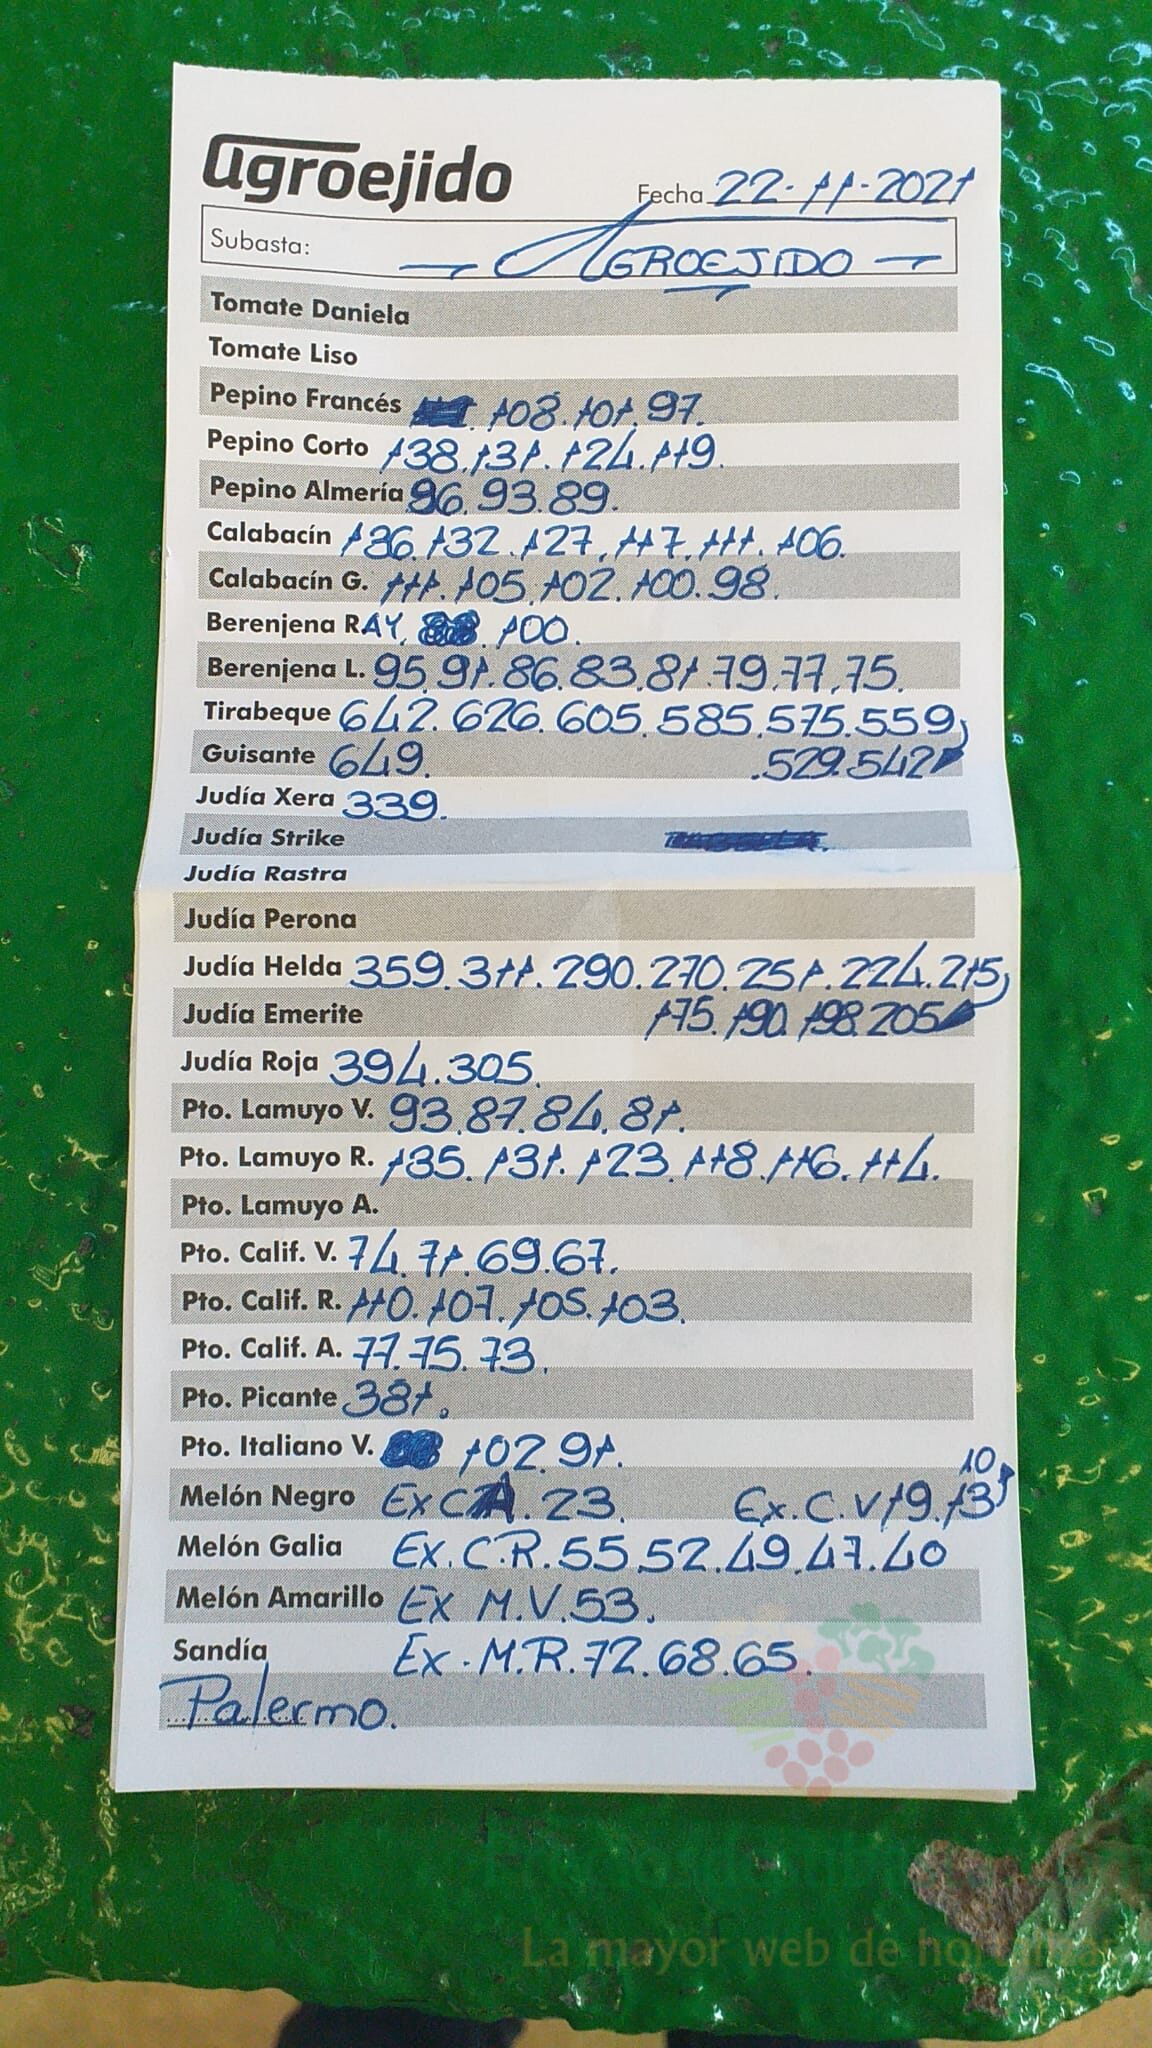 agroejido
Fecha 22-11-2021
Subasta: — AGROEJIDO —
Tomate Daniela
Tomate Liso
Pepino Francés 108.101.97.
Pepino Corto 138.131.124.119.
Pepino Almería 96.93.89.
Calabacín 136.132.127.117.111.106.
Calabacín G. 111.105.102.100.98.
Berenjena RAY. 100.
Berenjena L. 95.91.86.83.81.79.77.75.
Tirabeque 642.626.605.585.575.559,
Guisante 649. .529.542
Judía Xera 339.
Judía Strike
Judía Rastra
Judía Perona
Judía Helda 359.311.290.270.251.224.215,
Judía Emerite 175.190.198.205
Judía Roja 394.305.
Pto. Lamuyo V. 93.87.84.81.
Pto. Lamuyo R. 135.131.123.118.116.114.
Pto. Lamuyo A.
Pto. Calif. V. 74.71.69.67.
Pto. Calif. R. 110.107.105.103.
Pto. Calif. A. 77.75.73.
Pto. Picante 381.
Pto. Italiano V. 102.91.
10
Melón Negro Ex CA. 23. Ex.C.V 19.13
Melón Galia Ex.C.R.55.52.49.47.40
Melón Amarillo Ex M.V.53.
Sandía Ex.M.R.72.68.65.
Palermo.
La mayor web de